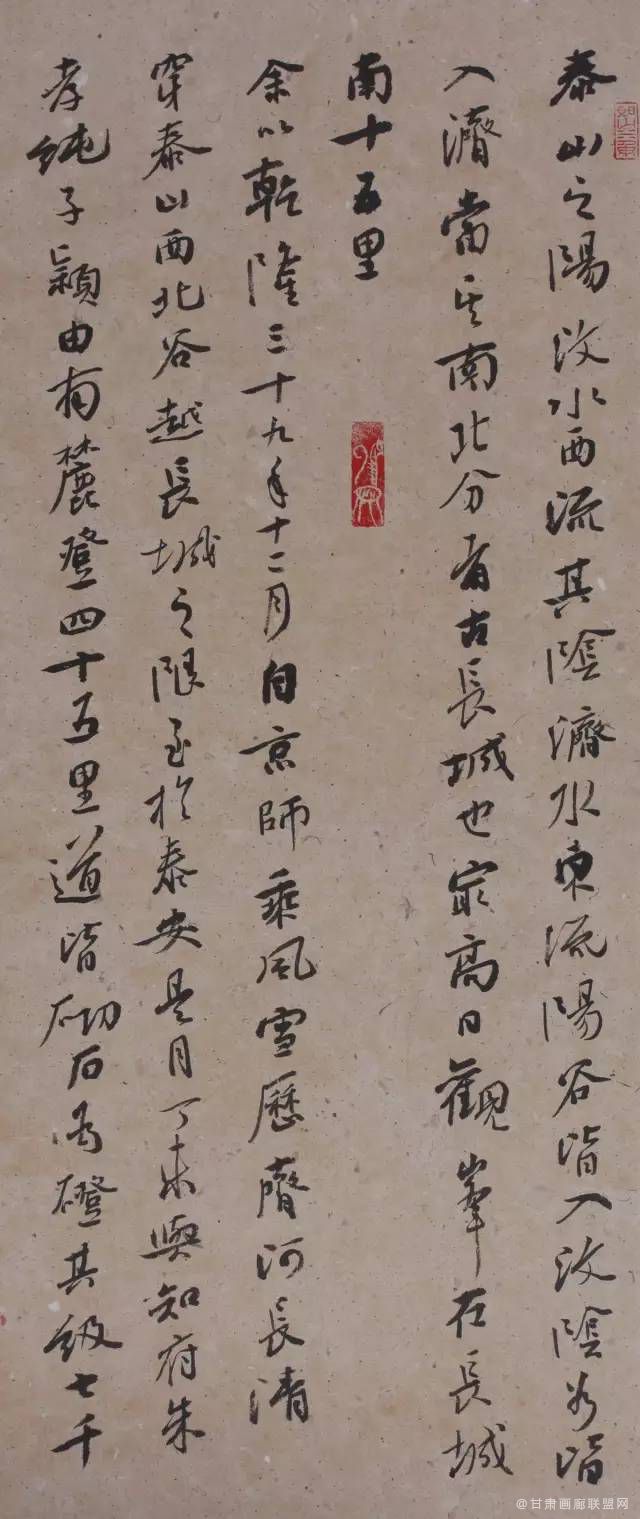 泰山之陽汶水西流其陰濟水東流陽谷皆入汶陰谷皆
入濟當其南北分者古長城也最高日觀峯在長城
南十五里
余以乾隆三十九年十二月自京師乘風雪歷齊河長清
穿泰山西北谷越長城之限至於泰安是月丁未與知府朱
孝純子潁由南麓登四十五里道皆砌石為磴其級七千
@甘肃画廊联盟网